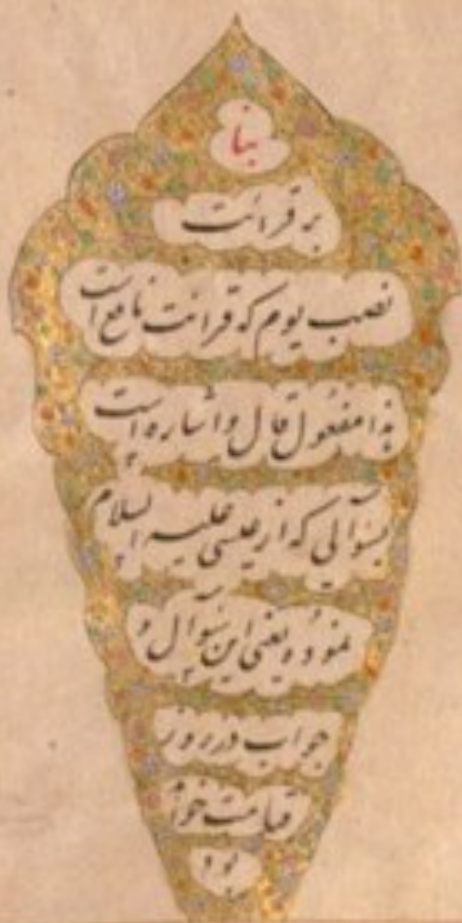 بنا
بر قرائت
نصب یوم که قرائت نافع است
هذا مفعول قال و اشاره است
بسوآلی که از عیسی علیه السلام
نموده یعنی این سوآل و
جواب در روز
قیامت خواهد
بود